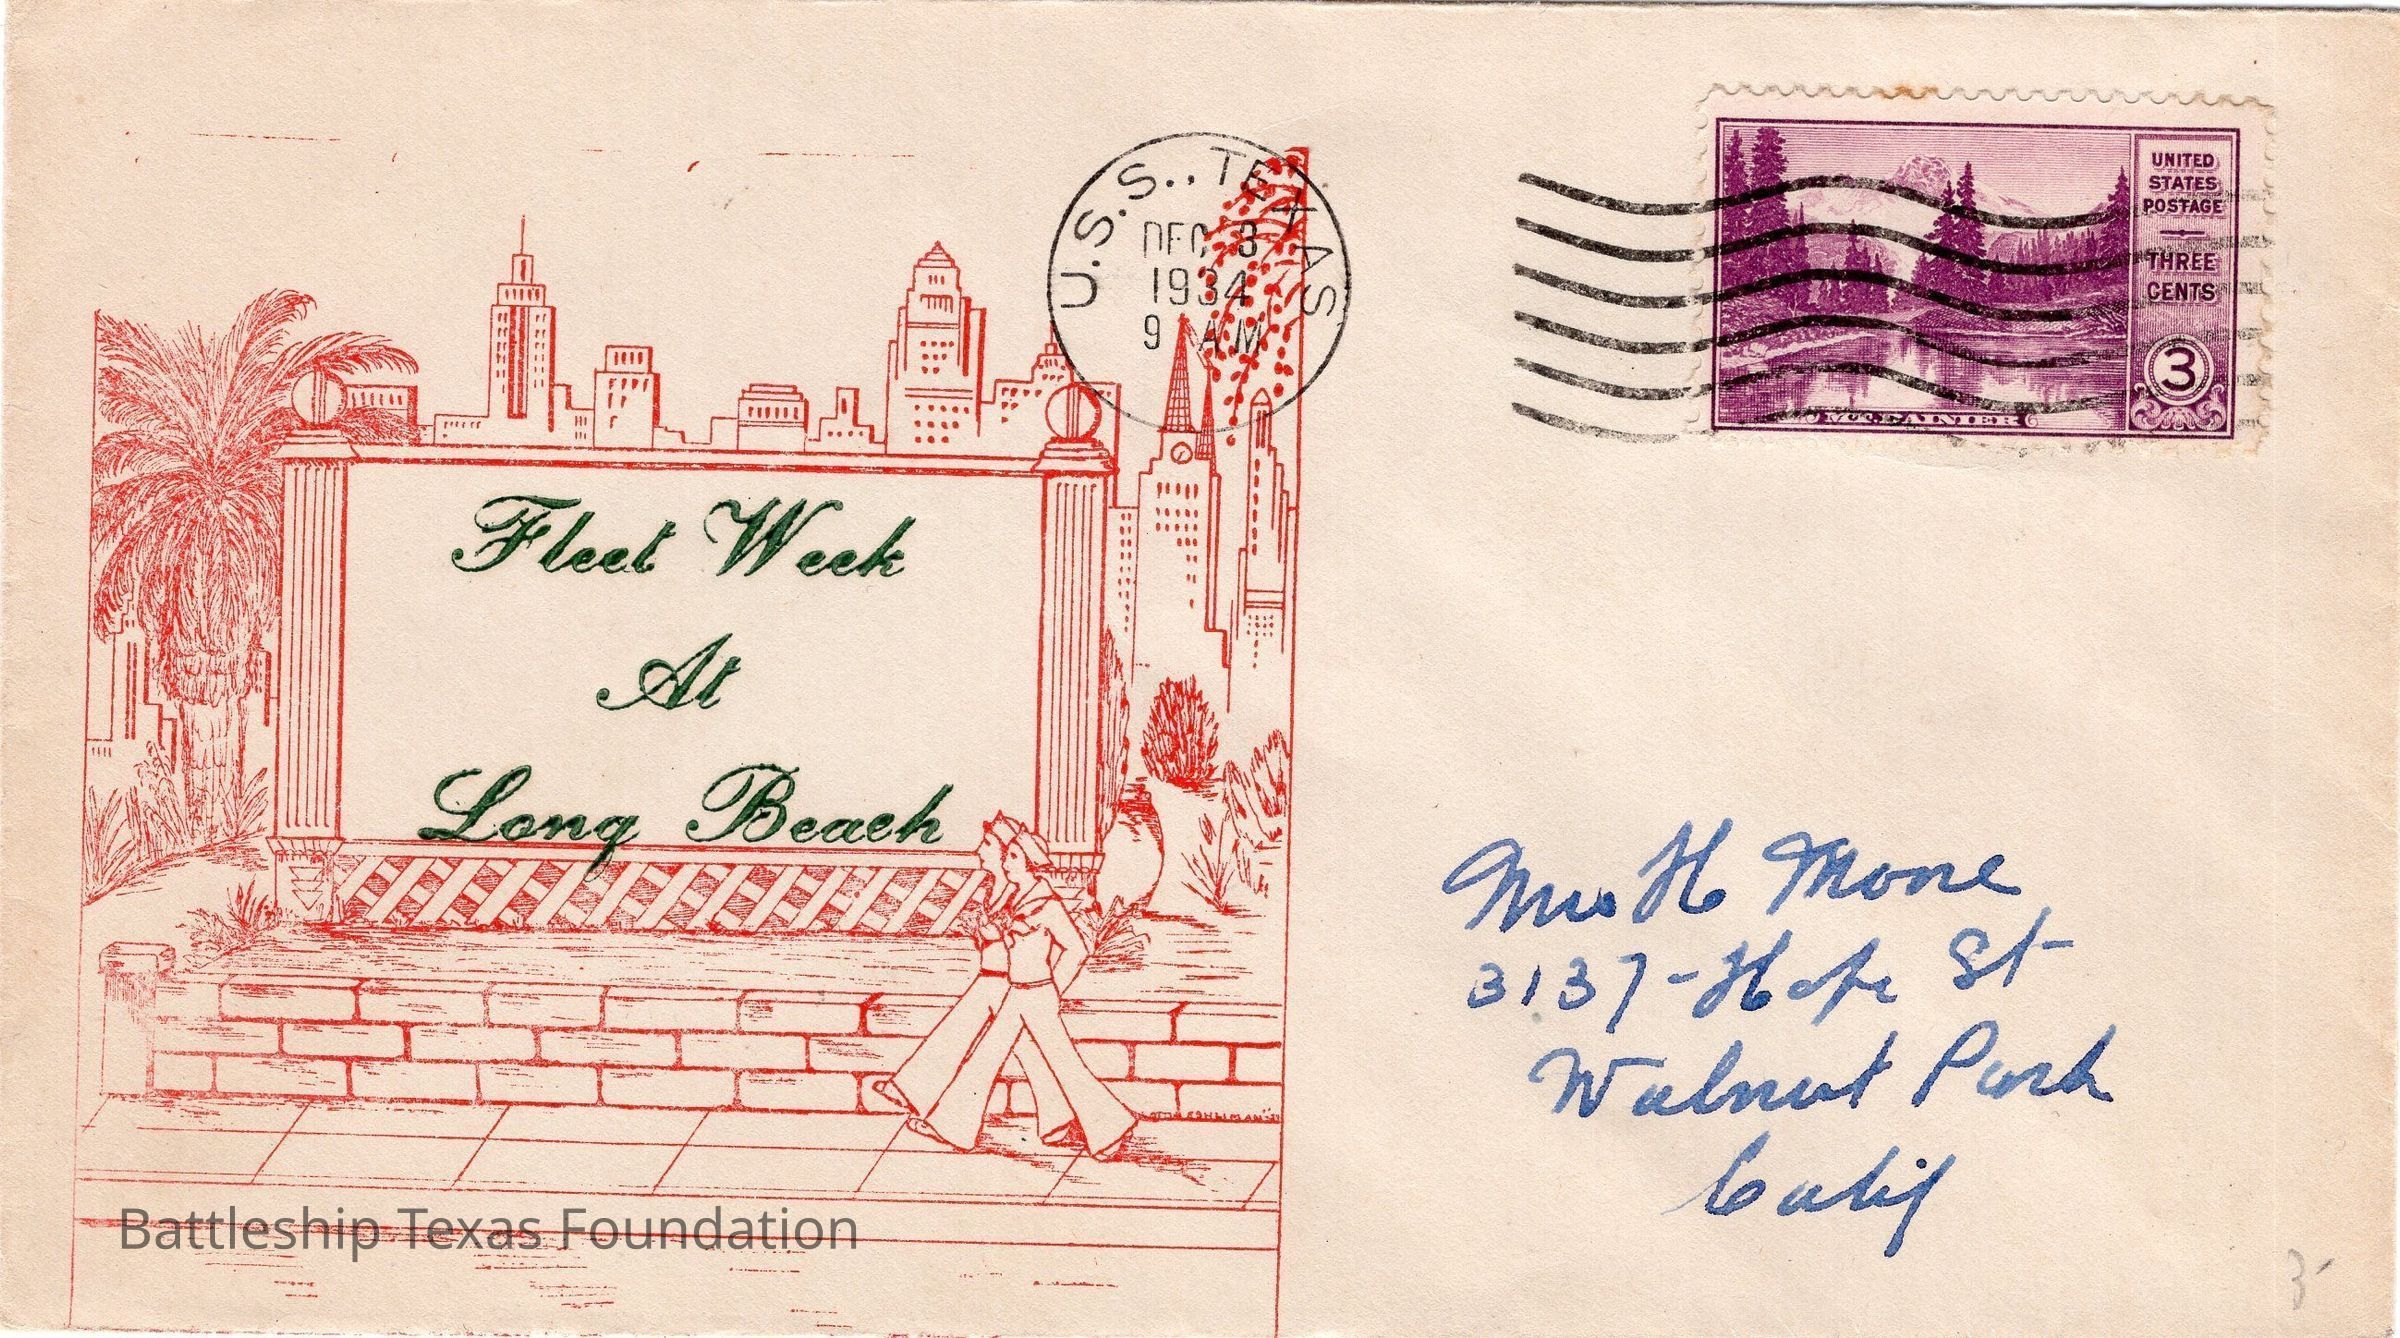 U.S.S., TEXAS
DEC 3
1934
9 AM
UNITED
STATES
POSTAGE
THREE
CENTS
3
MT. RAINIER
Fleet Week
At
Long Beach
Mrs H Mone
3137-Hope St
Walnut Park
Calif
Battleship Texas Foundation
3